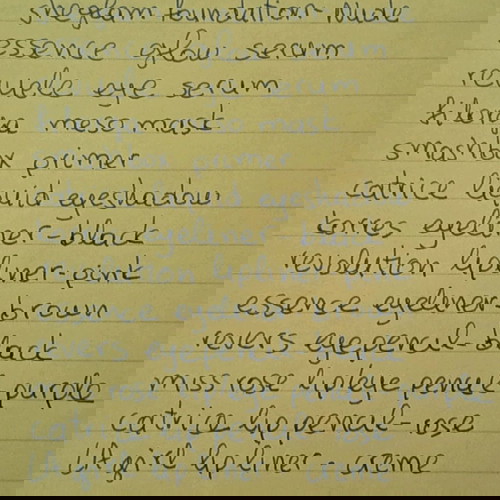 sheglam foundation-Nude
essence glow serum
revuele eye serum
meso mask
smashbox primer
catrice liquid eyeshadow
eyeliner-black
revolution lipliner-pink
essence eyeliner-brown
revers eyepencil-black
miss rose lip&eye pencil-purple
catrice lip pencil-rose
girl lip liner-creme